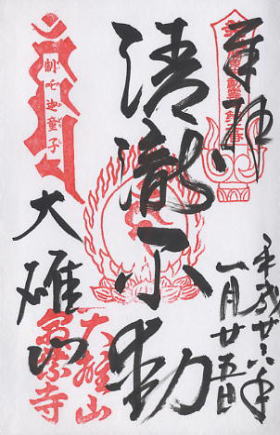 奉拝
平成廿六年
一月廿五日
清瀧不動
大雄山
制吒迦童子
大雄山
最乗寺